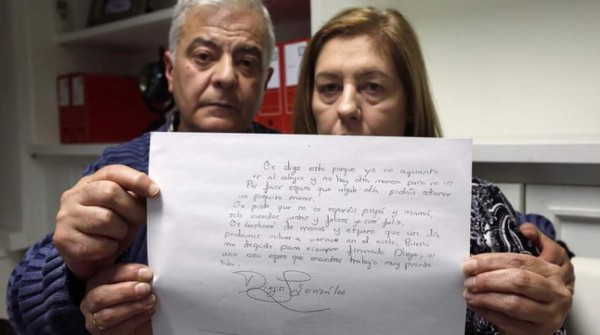 Os digo esto porque yo no aguanto
ir al colegio y no hay otra manera para no ir
Por favor espero que algún día podáis odiarme
un poquito menos.
Os pido que no os separéis papá y mamá,
solo viendoos juntos y felices yo seré feliz.
Os echaré de menos y espero que un día
podamos volver a vernos en el cielo. Bueno,
me despido para siempre firmado Diego, a
una cosa espero que encuentres trabajo muy pronto
tata.
Diego González